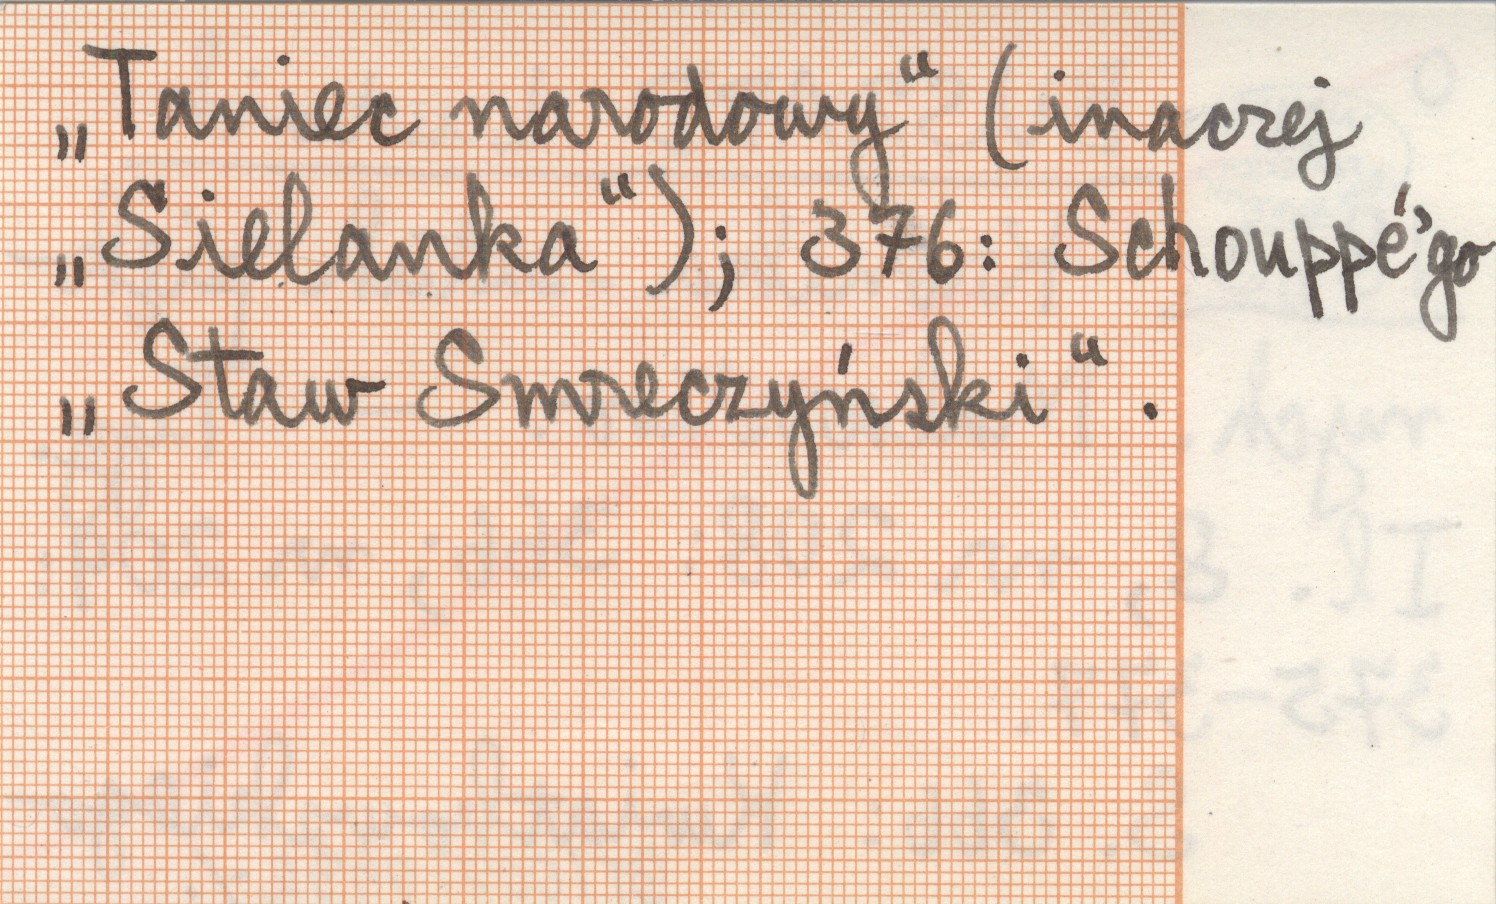 „Taniec narodowy“ (inaczej
„Sielanka“); 376: Schouppé'go
„Staw Smreczyński“.